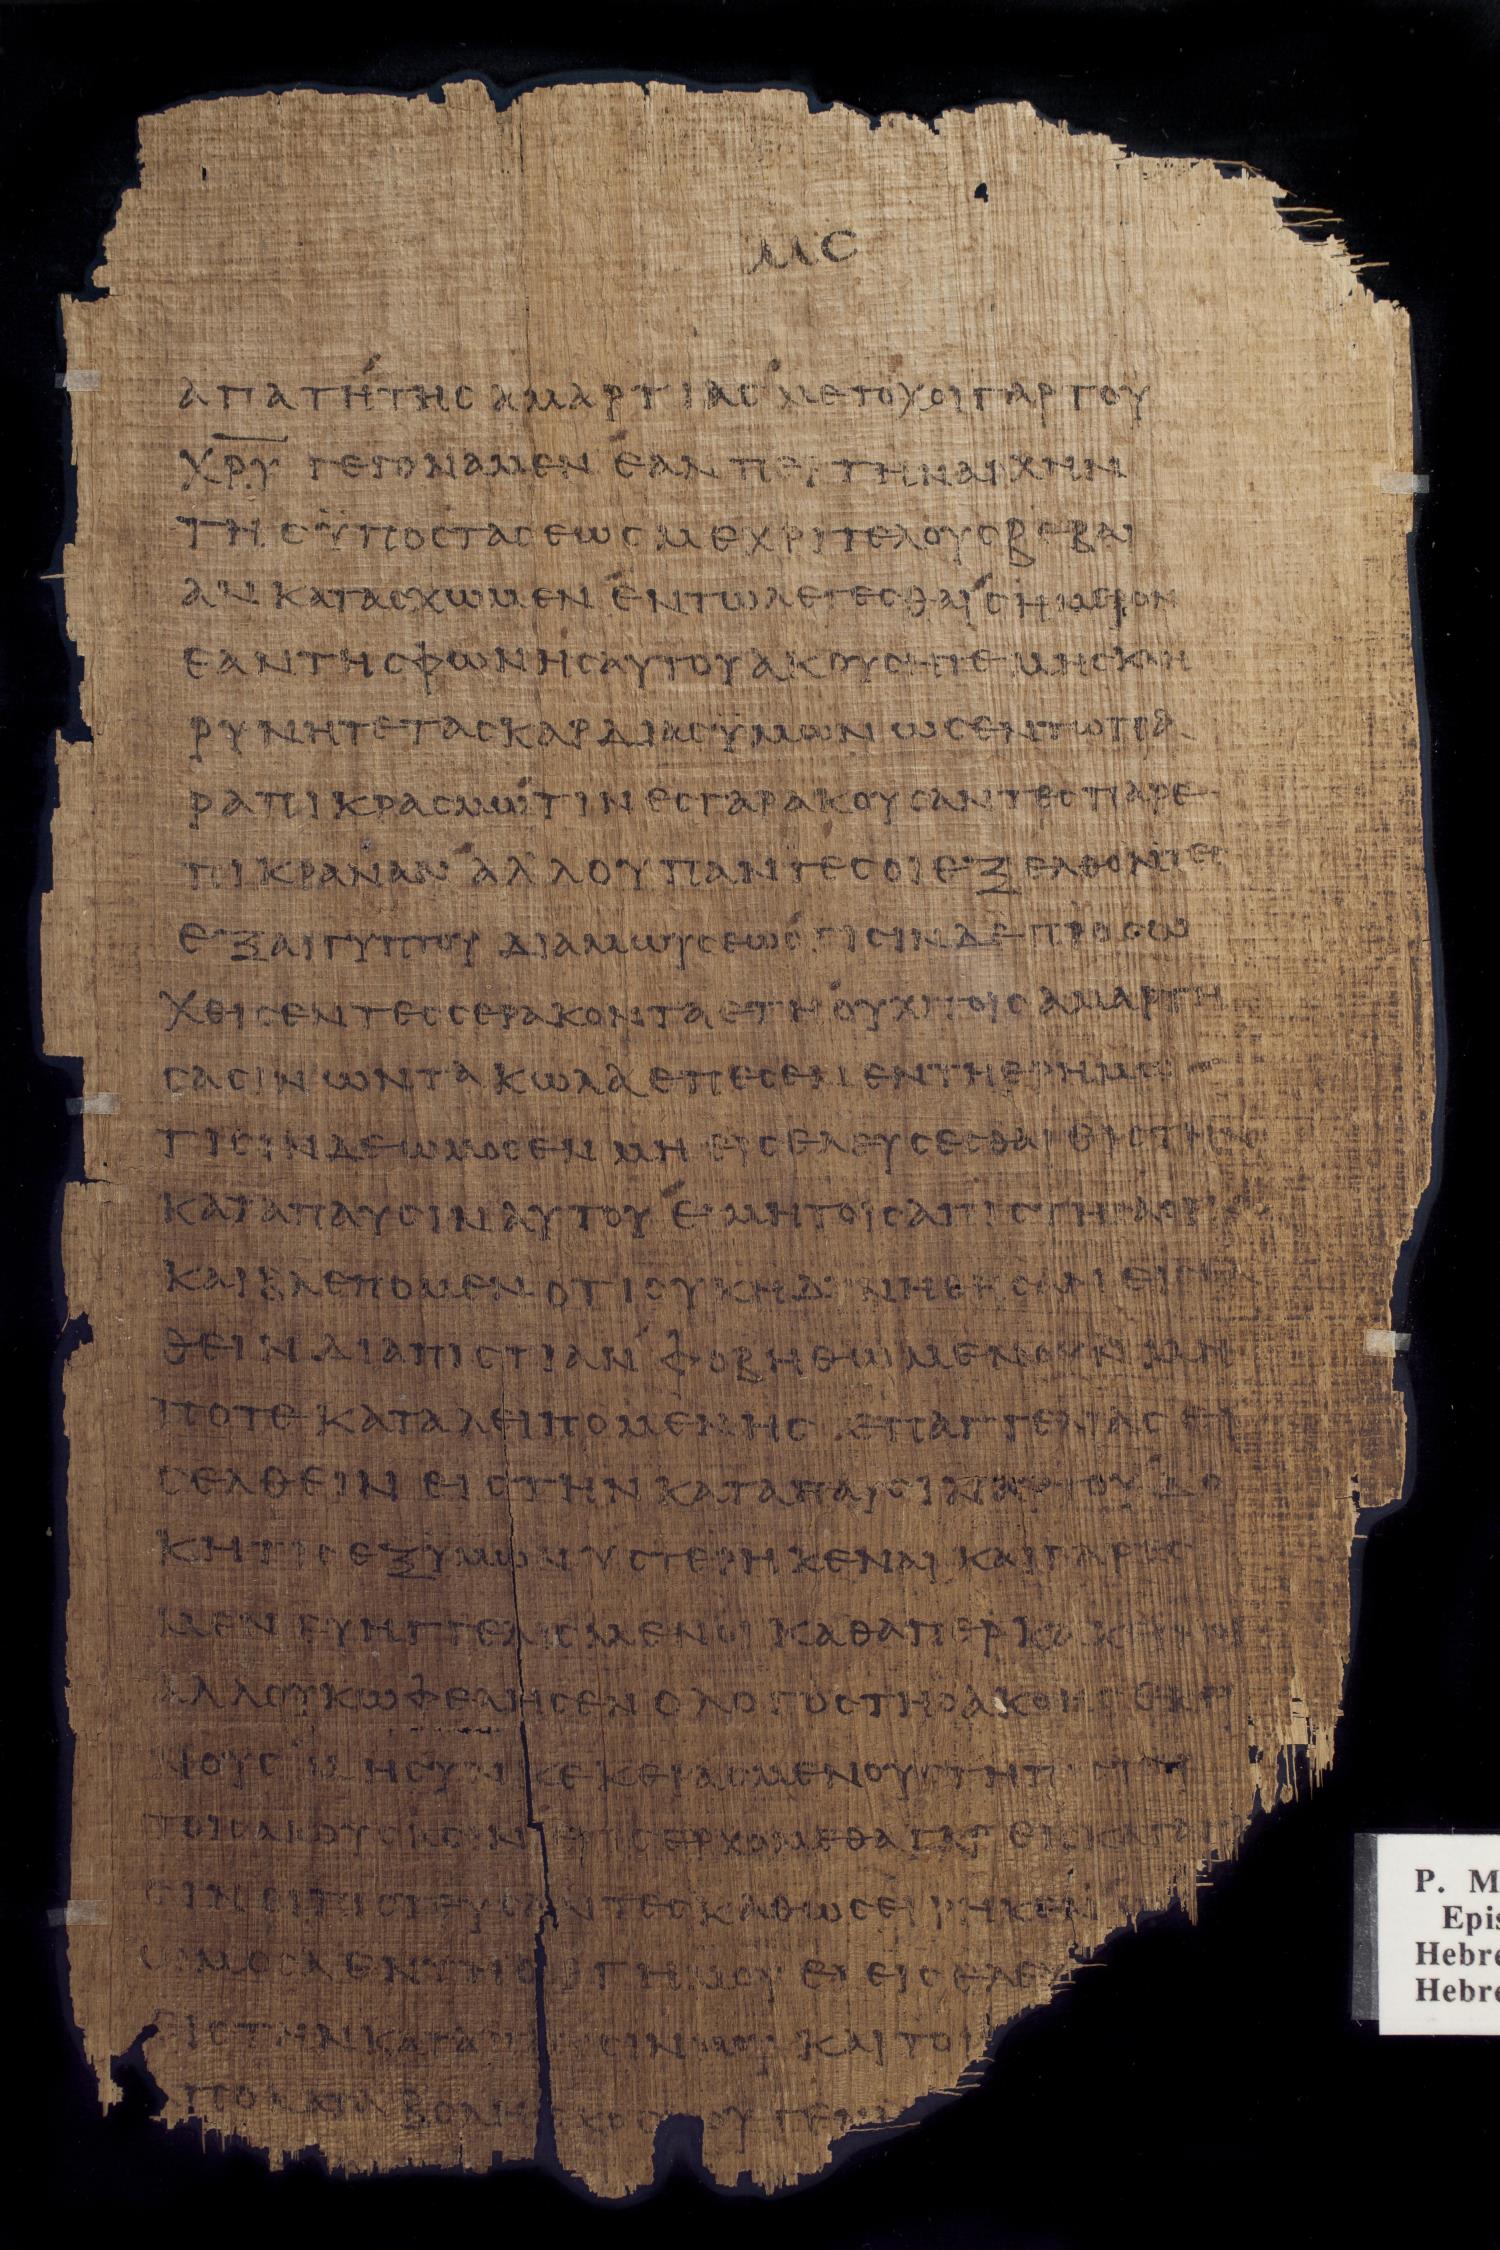 ΜϹ
ΑΠΑΤΗΤΗϹΑΜΑΡΤΙΑϹΜΕΤΟΧΟΙΓΑΡΤΟΥ
ΧΡΥΓΕΓΟΝΑΜΕΝΕΑΝΠΕΡΤΗΝΑΡΧΗΝ
ΤΗϹΫΠΟϹΤΑϹΕΩϹΜΕΧΡΙΤΕΛΟΥϹΒΕΒΑΙ
ΑΝΚΑΤΑϹΧΩΜΕΝΕΝΤΩΛΕΓΕϹΘΑΙϹΗΜΕΡΟΝ
ΕΑΝΤΗϹΦΩΝΗϹΑΥΤΟΥΑΚΟΥϹΗΤΕΜΗϹΚΛΗ
ΡΥΝΗΤΕΤΑϹΚΑΡΔΙΑϹΫΜΩΝΩϹΕΝΤΩΠΑ
ΡΑΠΙΚΡΑϹΜΩΤΙΝΕϹΓΑΡΑΚΟΥϹΑΝΤΕϹΠΑΡΕ
ΠΙΚΡΑΝΑΝΑΛΛΟΥΠΑΝΤΕϹΟΙΕΞΕΛΘΟΝΤΕϹ
ΕΞΑΙΓΥΠΤΟΥΔΙΑΜΩΥϹΕΩϹΤΙϹΙΝΔΕΠΡΟϹΩ
ΧΘΙϹΕΝΤΕϹϹΕΡΑΚΟΝΤΑΕΤΗΟΥΧΙΤΟΙϹΑΜΑΡΤΗ
ϹΑϹΙΝΩΝΤΑΚΩΛΑΕΠΕϹΕΝΕΝΤΗΕΡΗΜΩ
ΤΙϹΙΝΔΕΩΜΟϹΕΝΜΗΕΙϹΕΛΕΥϹΕϹΘΑΙΕΙϹΤΗΝ
ΚΑΤΑΠΑΥϹΙΝΑΥΤΟΥΕΙΜΗΤΟΙϹΑΠΙϹΤΗϹΑϹΙ
ΚΑΙΒΛΕΠΟΜΕΝΟΤΙΟΥΚΗΔΥΝΗΘΗϹΑΝΕΙϹΕΛ
ΘΕΙΝΔΙΑΠΙϹΤΙΑΝΦΟΒΗΘΩΜΕΝΟΥΝΜΗ
ΠΟΤΕΚΑΤΑΛΕΙΠΟΜΕΝΗϹΕΠΑΓΓΕΛΙΑϹΕΙ
ϹΕΛΘΕΙΝΕΙϹΤΗΝΚΑΤΑΠΑΥϹΙΝΑΥΤΟΥΔΟ
ΚΗΤΙϹΕΞΫΜΩΝΥϹΤΕΡΗΚΕΝΑΙΚΑΙΓΑΡΕϹ
ΜΕΝΕΥΗΓΓΕΛΙϹΜΕΝΟΙΚΑΘΑΠΕΡΚΑΚΕΙΝΟΙ
ΑΛΛΟΥΚΩΦΕΛΗϹΕΝΟΛΟΓΟϹΤΗϹΑΚΟΗϹΕΚΕΙ
ΝΟΥϹΜΗϹΥΝΚΕΚΕΡΑϹΜΕΝΟΥϹΤΗΠΙϹΤΕΙ
ΤΟΙϹΑΚΟΥϹΑϹΙΝΕΙϹΕΡΧΟΜΕΘΑΓΑΡΕΙϹΚΑΤΑΠΑΥ
ϹΙΝΟΙΠΙϹΤΕΥϹΑΝΤΕϹΚΑΘΩϹΕΙΡΗΚΕΝ
ΩΜΟϹΑΕΝΤΗΟΡΓΗΜΟΥΕΙΕΙϹΕΛΕΥ
ΕΙϹΤΗΝΚΑΤΑΠΑΥϹΙΝΜΟΥΚΑΙΤΟΙ
ΑΠΟΚΑΤΑΒΟΛΗϹΚΟϹΜΟΥΓΕΝ
P. M
Epis
Hebre
Hebre